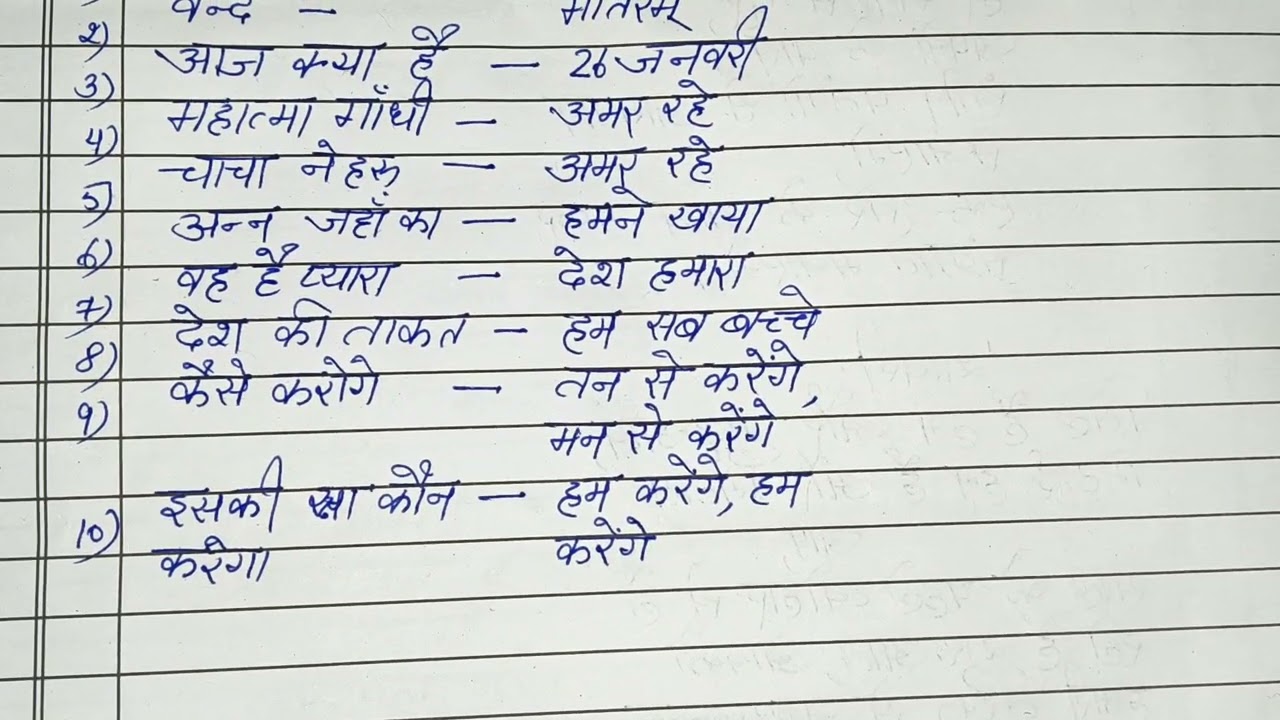 वन्दे – मातरम्
2) आज क्या है – 26 जनवरी
3) महात्मा गाँधी – अमर रहे
4) चाचा नेहरू – अमर रहे
5) अन्न जहाँ का – हमने खाया
6) वह है प्यारा – देश हमारा
7) देश की ताकत – हम सब बच्चे
8) कैसे करोगे – तन से करेंगे,
9) मन से करेंगे
इसकी रक्षा कौन – हम करेंगे, हम
10) करेगा करेंगे